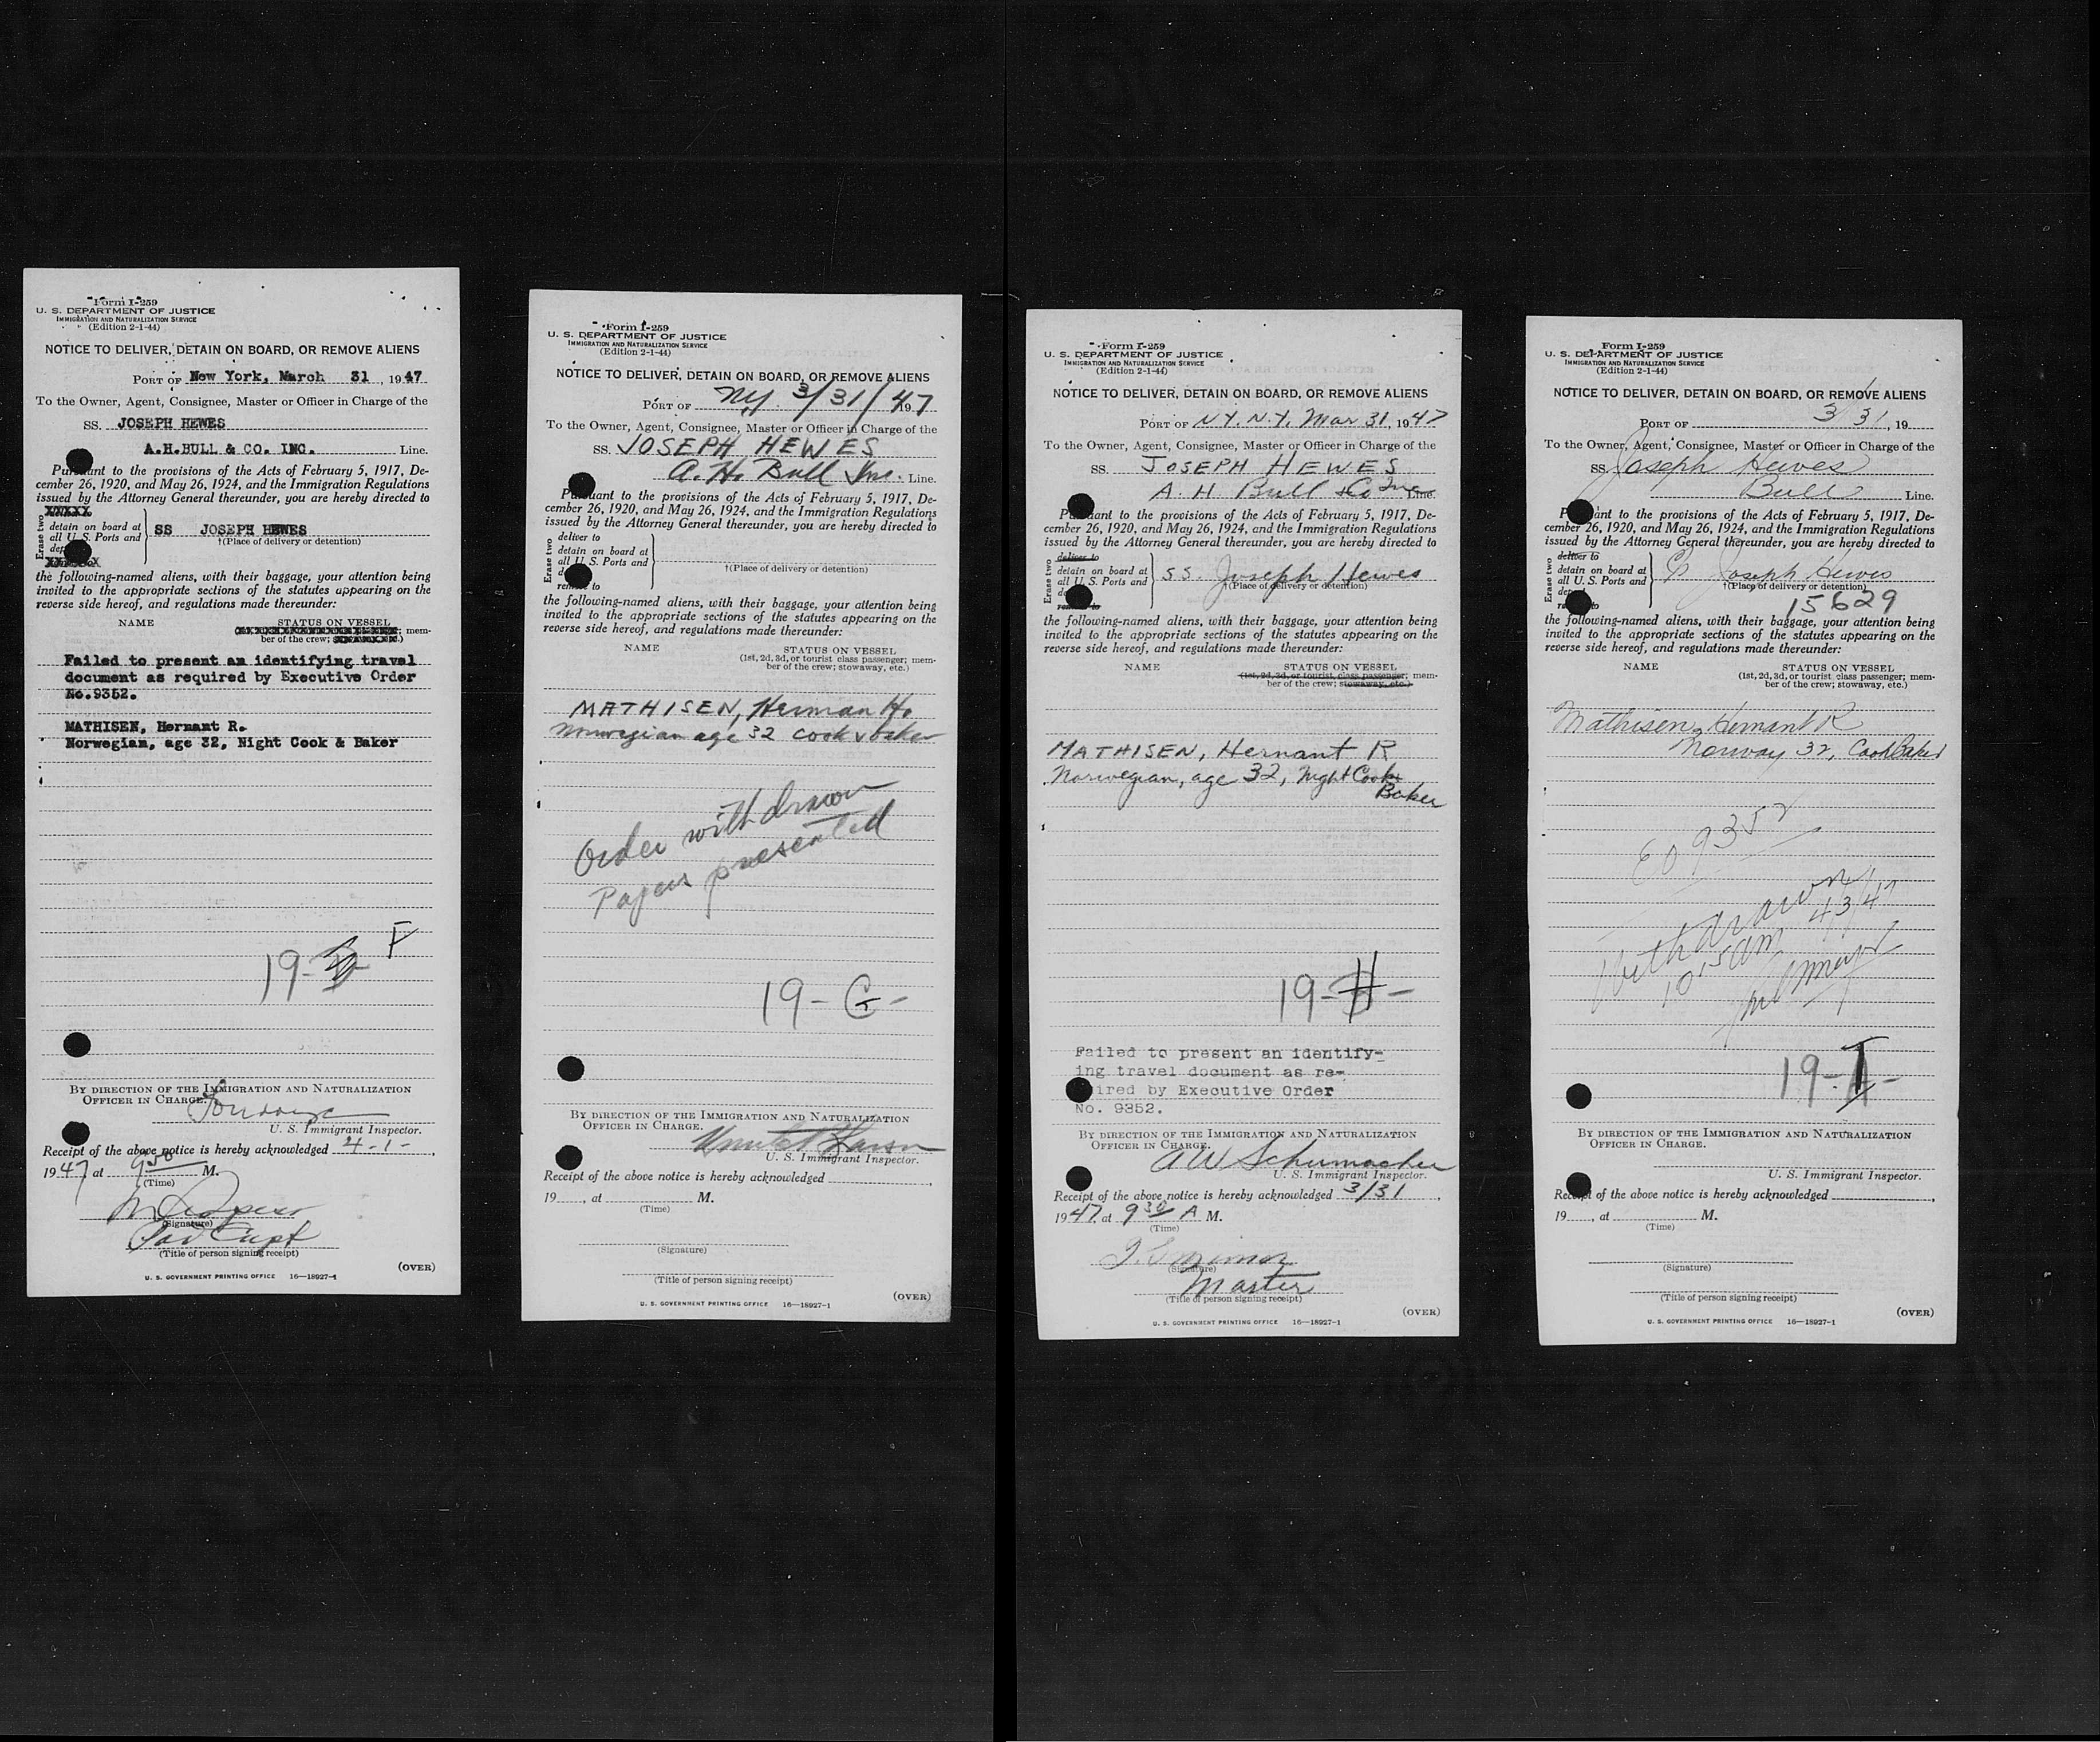 Form I-259
U. S. DEPARTMENT OF JUSTICE
IMMIGRATION AND NATURALIZATION SERVICE
(Edition 2-1-44)
NOTICE TO DELIVER, DETAIN ON BOARD, OR REMOVE ALIENS
PORT OF New York, March 31, 1947
To the Owner, Agent, Consignee, Master or Officer in Charge of the
SS. JOSEPH HEWES
A.H.BULL & CO. INC. Line.
Pursuant to the provisions of the Acts of February 5, 1917, De-
cember 26, 1920, and May 26, 1924, and the Immigration Regulations
issued by the Attorney General thereunder, you are hereby directed to
Erase two
detain on board at
all U. S. Ports and
SS JOSEPH HEWES
†(Place of delivery or detention)
the following-named aliens, with their baggage, your attention being
invited to the appropriate sections of the statutes appearing on the
reverse side hereof, and regulations made thereunder:
NAME STATUS ON VESSEL
mem-
ber of the crew;
Failed to present an identifying travel
document as required by Executive Order
No.9352.
MATHISEN, Hernant R.
Norwegian, age 32, Night Cook & Baker
19- F
BY DIRECTION OF THE IMMIGRATION AND NATURALIZATION
OFFICER IN CHARGE.
U. S. Immigrant Inspector.
Receipt of the above notice is hereby acknowledged 4-1-,
1947 at 9 50 M.
(Time)
(Signature)
(Title of person signing receipt)
(OVER)
U. S. GOVERNMENT PRINTING OFFICE 16—18927-1
Form I-259
U. S. DEPARTMENT OF JUSTICE
IMMIGRATION AND NATURALIZATION SERVICE
(Edition 2-1-44)
NOTICE TO DELIVER, DETAIN ON BOARD, OR REMOVE ALIENS
PORT OF NY. 3/31/47
To the Owner, Agent, Consignee, Master or Officer in Charge of the
SS. JOSEPH HEWES
A. H. Bull Inc. Line.
Pursuant to the provisions of the Acts of February 5, 1917, De-
cember 26, 1920, and May 26, 1924, and the Immigration Regulations
issued by the Attorney General thereunder, you are hereby directed to
Erase two
deliver to
detain on board at
all U. S. Ports and
remove to
†(Place of delivery or detention)
the following-named aliens, with their baggage, your attention being
invited to the appropriate sections of the statutes appearing on the
reverse side hereof, and regulations made thereunder:
NAME STATUS ON VESSEL
(1st, 2d, 3d, or tourist class passenger; mem-
ber of the crew; stowaway, etc.)
MATHISEN, Herman H.
Norwegian age 32 cook & baker
Order withdrawn
Papers presented
19- G-
BY DIRECTION OF THE IMMIGRATION AND NATURALIZATION
OFFICER IN CHARGE.
U. S. Immigrant Inspector.
Receipt of the above notice is hereby acknowledged
19 , at M.
(Time)
(Signature)
(Title of person signing receipt)
(OVER)
U. S. GOVERNMENT PRINTING OFFICE 16—18927-1
Form I-259
U. S. DEPARTMENT OF JUSTICE
IMMIGRATION AND NATURALIZATION SERVICE
(Edition 2-1-44)
NOTICE TO DELIVER, DETAIN ON BOARD, OR REMOVE ALIENS
PORT OF N.Y. N.Y. Mar 31, 1947
To the Owner, Agent, Consignee, Master or Officer in Charge of the
SS. JOSEPH HEWES
A. H Bull & Co Inc Line.
Pursuant to the provisions of the Acts of February 5, 1917, De-
cember 26, 1920, and May 26, 1924, and the Immigration Regulations
issued by the Attorney General thereunder, you are hereby directed to
Erase two
deliver to
detain on board at
all U. S. Ports and
remove to
S.S. Joseph Hewes
†(Place of delivery or detention)
the following-named aliens, with their baggage, your attention being
invited to the appropriate sections of the statutes appearing on the
reverse side hereof, and regulations made thereunder:
NAME STATUS ON VESSEL
(1st, 2d, 3d, or tourist class passenger; mem-
ber of the crew; stowaway, etc.)
MATHISEN, Hernant R
Norwegian, age 32, Night Cook
Baker
19-H-
Failed to present an identify-
ing travel document as re-
quired by Executive Order
No. 9352.
BY DIRECTION OF THE IMMIGRATION AND NATURALIZATION
OFFICER IN CHARGE.
A W Schumacher
U. S. Immigrant Inspector.
Receipt of the above notice is hereby acknowledged 3/31,
1947, at 9 30 A M.
(Time)
(Signature)
Master
(Title of person signing receipt)
(OVER)
U. S. GOVERNMENT PRINTING OFFICE 16—18927-1
Form I-259
U. S. DEPARTMENT OF JUSTICE
IMMIGRATION AND NATURALIZATION SERVICE
(Edition 2-1-44)
NOTICE TO DELIVER, DETAIN ON BOARD, OR REMOVE ALIENS
PORT OF 3/31, 19
To the Owner, Agent, Consignee, Master or Officer in Charge of the
SS. Joseph Hewes
Bull Line.
Pursuant to the provisions of the Acts of February 5, 1917, De-
cember 26, 1920, and May 26, 1924, and the Immigration Regulations
issued by the Attorney General thereunder, you are hereby directed to
Erase two
deliver to
detain on board at
all U. S. Ports and
remove to
Joseph Hewes
†(Place of delivery or detention)
15629
the following-named aliens, with their baggage, your attention being
invited to the appropriate sections of the statutes appearing on the
reverse side hereof, and regulations made thereunder:
NAME STATUS ON VESSEL
(1st, 2d, 3d, or tourist class passenger; mem-
ber of the crew; stowaway, etc.)
Mathisen, Hernant R
Norway 32, Cook Baker
EO 9352
Withdrawn
10 15 am 4/3/47
19-I-
BY DIRECTION OF THE IMMIGRATION AND NATURALIZATION
OFFICER IN CHARGE.
U. S. Immigrant Inspector.
Receipt of the above notice is hereby acknowledged
19 , at M.
(Time)
(Signature)
(Title of person signing receipt)
(OVER)
U. S. GOVERNMENT PRINTING OFFICE 16—18927-1